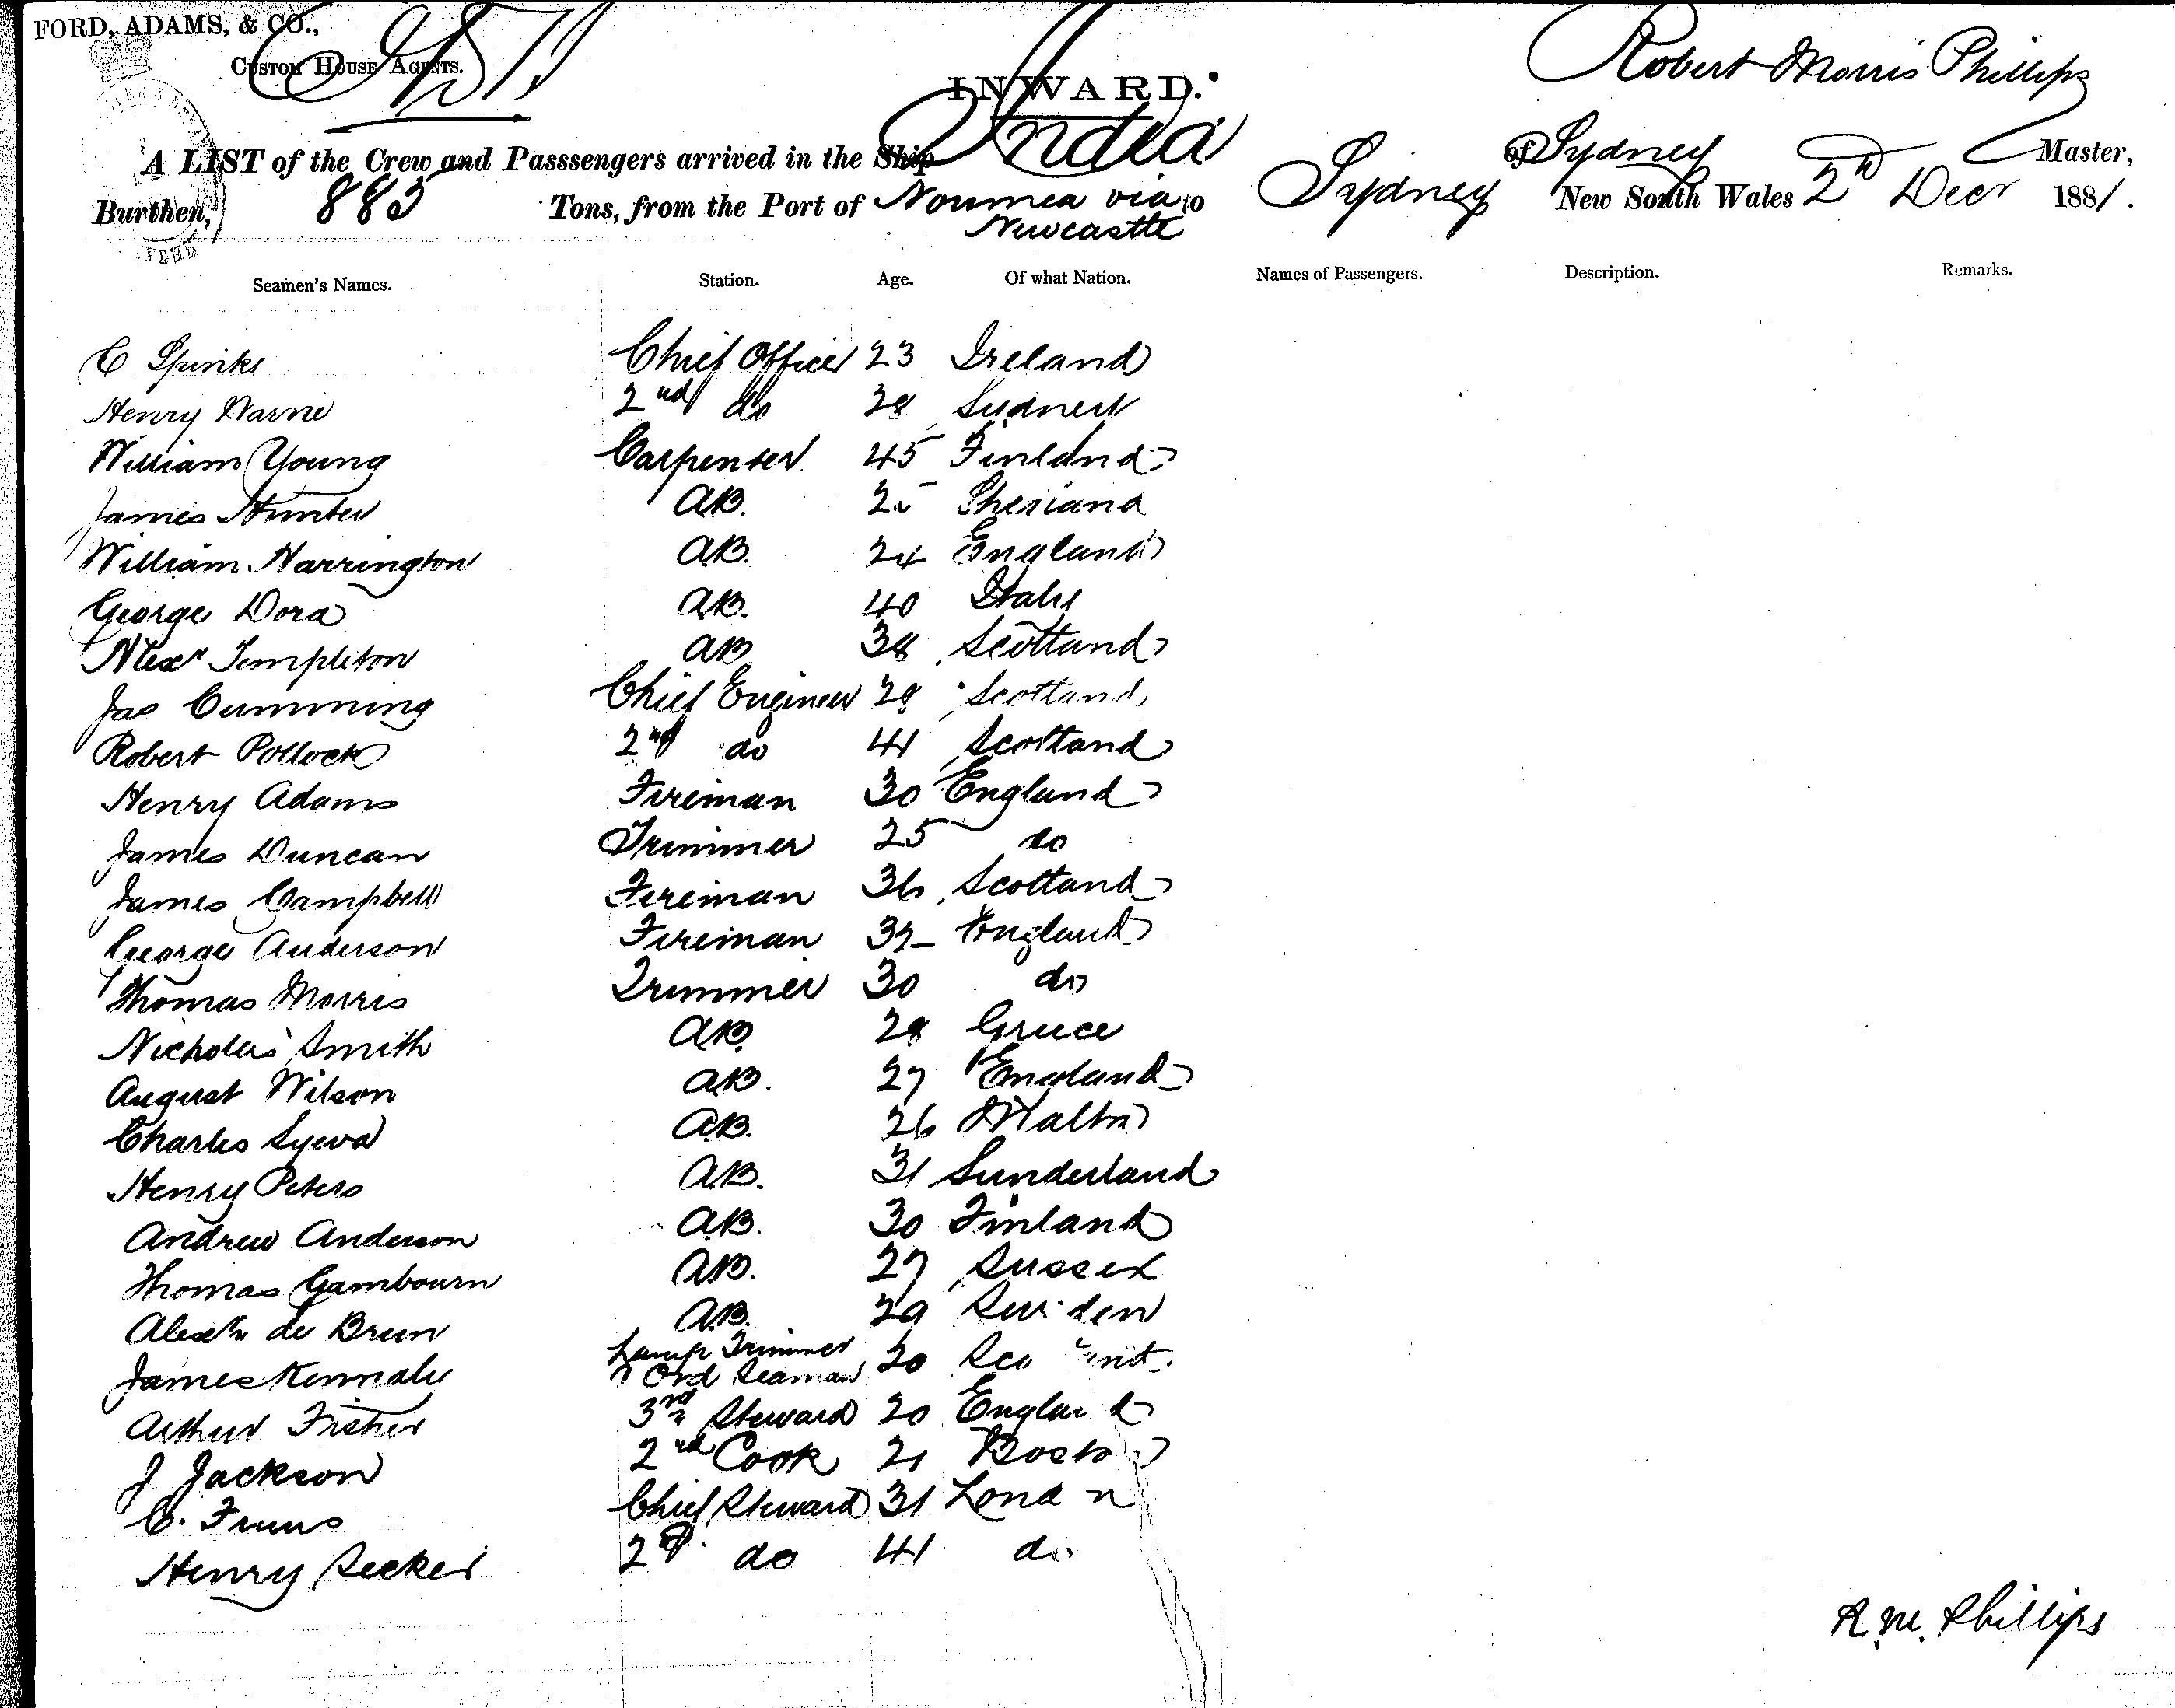 FORD, ADAMS, & CO.,
CUSTOM HOUSE AGENTS.
INWARD.
Robert Morris Phillips
A LIST of the Crew and Passsengers arrived in the Ship India of Sydney Master,
Burthen, 885 Tons, from the Port of Noumea via Newcastle to Sydney New South Wales 2nd Decr 1881.
Seamen's Names. Station. Age. Of what Nation. Names of Passengers. Description. Remarks.
C Spinks Chief Officer 23 Ireland
Henry Warne 2nd do 28 Sydney
William Young Carpenter 45 Finland
James Hunter AB.
William Harrington AB. 24 England
George Dora AB. 40 Italy
Alexr Templeton AB 38 Scotland
Jas Cumming Chief Engineer 28 Scotland
Robert Pollock 2nd do 41 Scotland
Henry Adams Fireman 30 England
James Duncan Trimmer 25 do
James Campbell Fireman 36 Scotland
George Anderson Fireman England
Thomas Morris Trimmer 30 do
Nicholas Smith AB. 28 Greece
August Wilson AB. 27 England
Charles AB. 26 Malta
Henry Peters AB. 31 Sunderland
Andrew Anderson AB. 30 Finland
Thomas Gambourn AB. 27 Sussex
de Brun AB. 29 Sweden
James Kennedy Lamp Trimmer & Ord Seaman 20 Scotland
Arthur Fisher 3rd Steward 20 England
J Jackson 2nd Cook 21 Boston
C. Chief Steward 31 London
Henry Secker 2nd do 41 do
R. M. Phillips